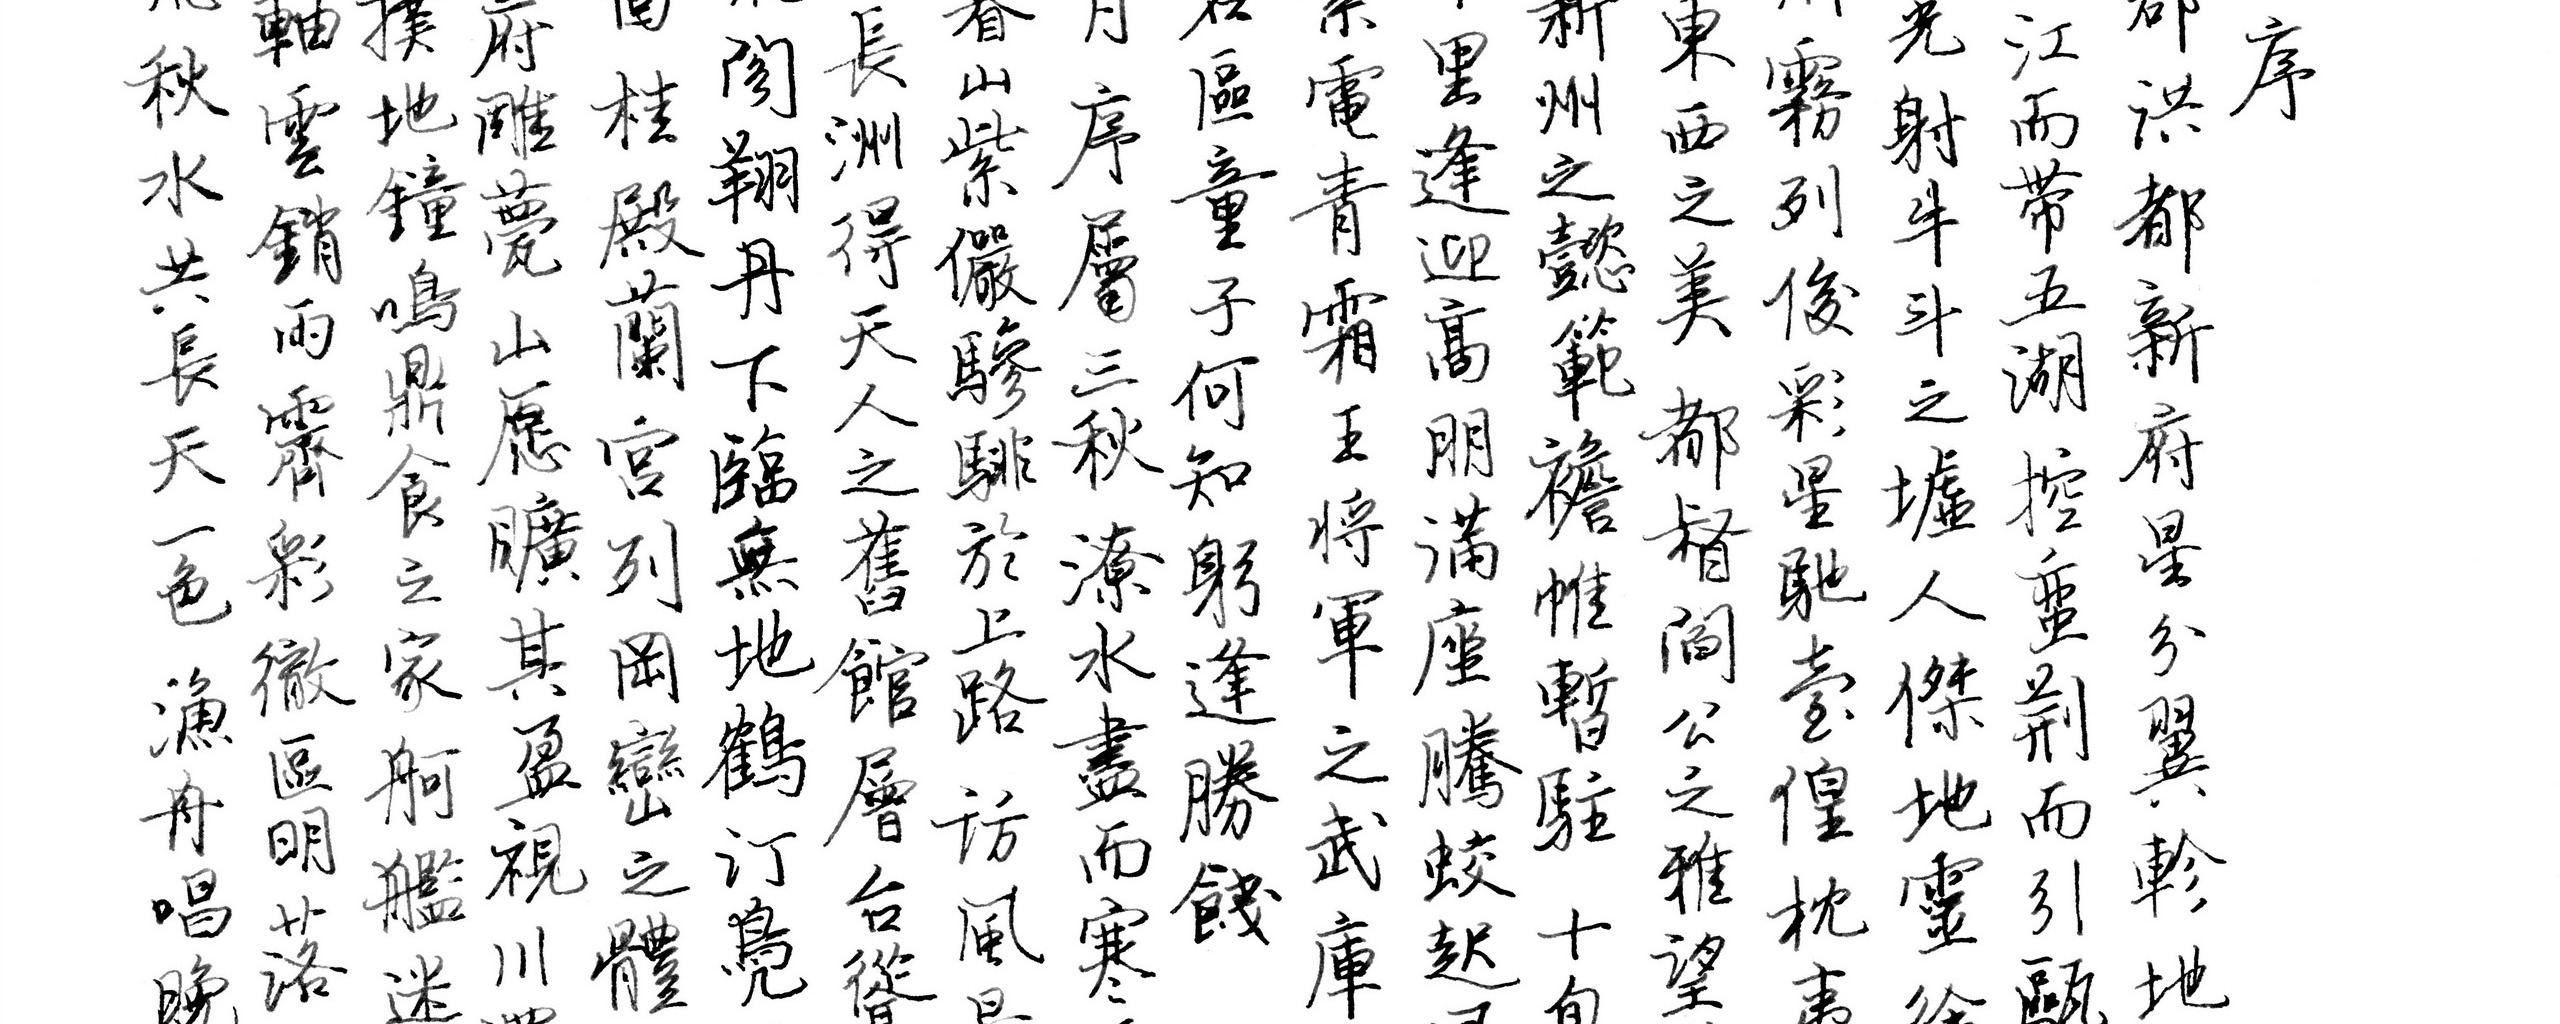 序
郡洪都新府星分翼軫地
江而带五湖控蛮荆而引甌
光射牛斗之墟人傑地靈徐
霧列俊彩星馳臺隍枕夷
東西之美都督閻公之雅望
新州之懿範襜帷暫駐十旬
里逢迎髙朋满座騰蛟起
紫電青霜王将軍之武庫
區童子何知躬逢勝餞
月序屬三秋潦水盡而寒
春山紫儼驂騑於上路访風景
長洲得天人之舊館層台聳
閣翔丹下臨無地鶴汀鳧
桂殿蘭宫列岡巒之體
府雕甍山愿曠其盈視川
撲地鐘鳴鼎食之家舸艦迷
軸雲銷雨霽彩徹區明落
秋水共長天一色漁舟唱晚